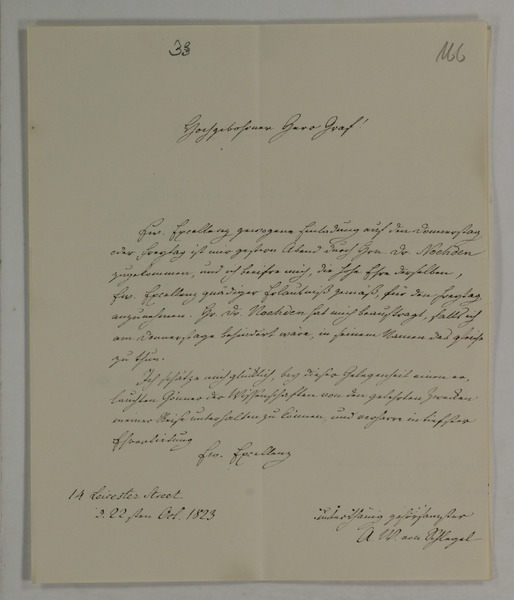 33
166
Hochgebohrner Herr Graf!
Ew. Excellenz gewogene Einladung auf den Donnerstag
oder Freytag ist mir gestern Abend durch Hrn. Dr. Noehden
zugekommen, und ich beeifre mich, die hohe Ehre derselben,
Ew. Excellenz gnädiger Erlaubniß gemäß, für den Freytag
anzunehmen. Hr. Dr. Noehden hat mich beauftragt, falls ich
am Donnerstage behindert wäre, in seinem Namen das gleiche
zu thun.
Ich schätze mich glücklich, bey dieser Gelegenheit einen er,
lauchten Gönner der Wissenschaften von den gelehrten Zwecken
meiner Reise unterhalten zu können, und verharre in tiefster
Ehrerbietung
Ew. Excellenz
14 Leicester Street
d. 22sten Oct. 1823
unterthänig gehorsamster
A. W. von Schlegel